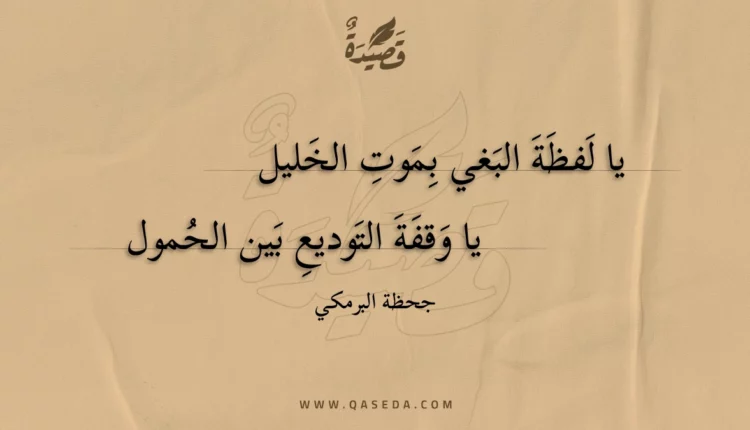 قَصِيدَةٌ
يا لَفظَةَ البَغي بِمَوتِ الخَليل
يا وَقفَةَ التَوديعِ بَين الحُمول
جحظة البرمكي
WWW.QASEDA.COM